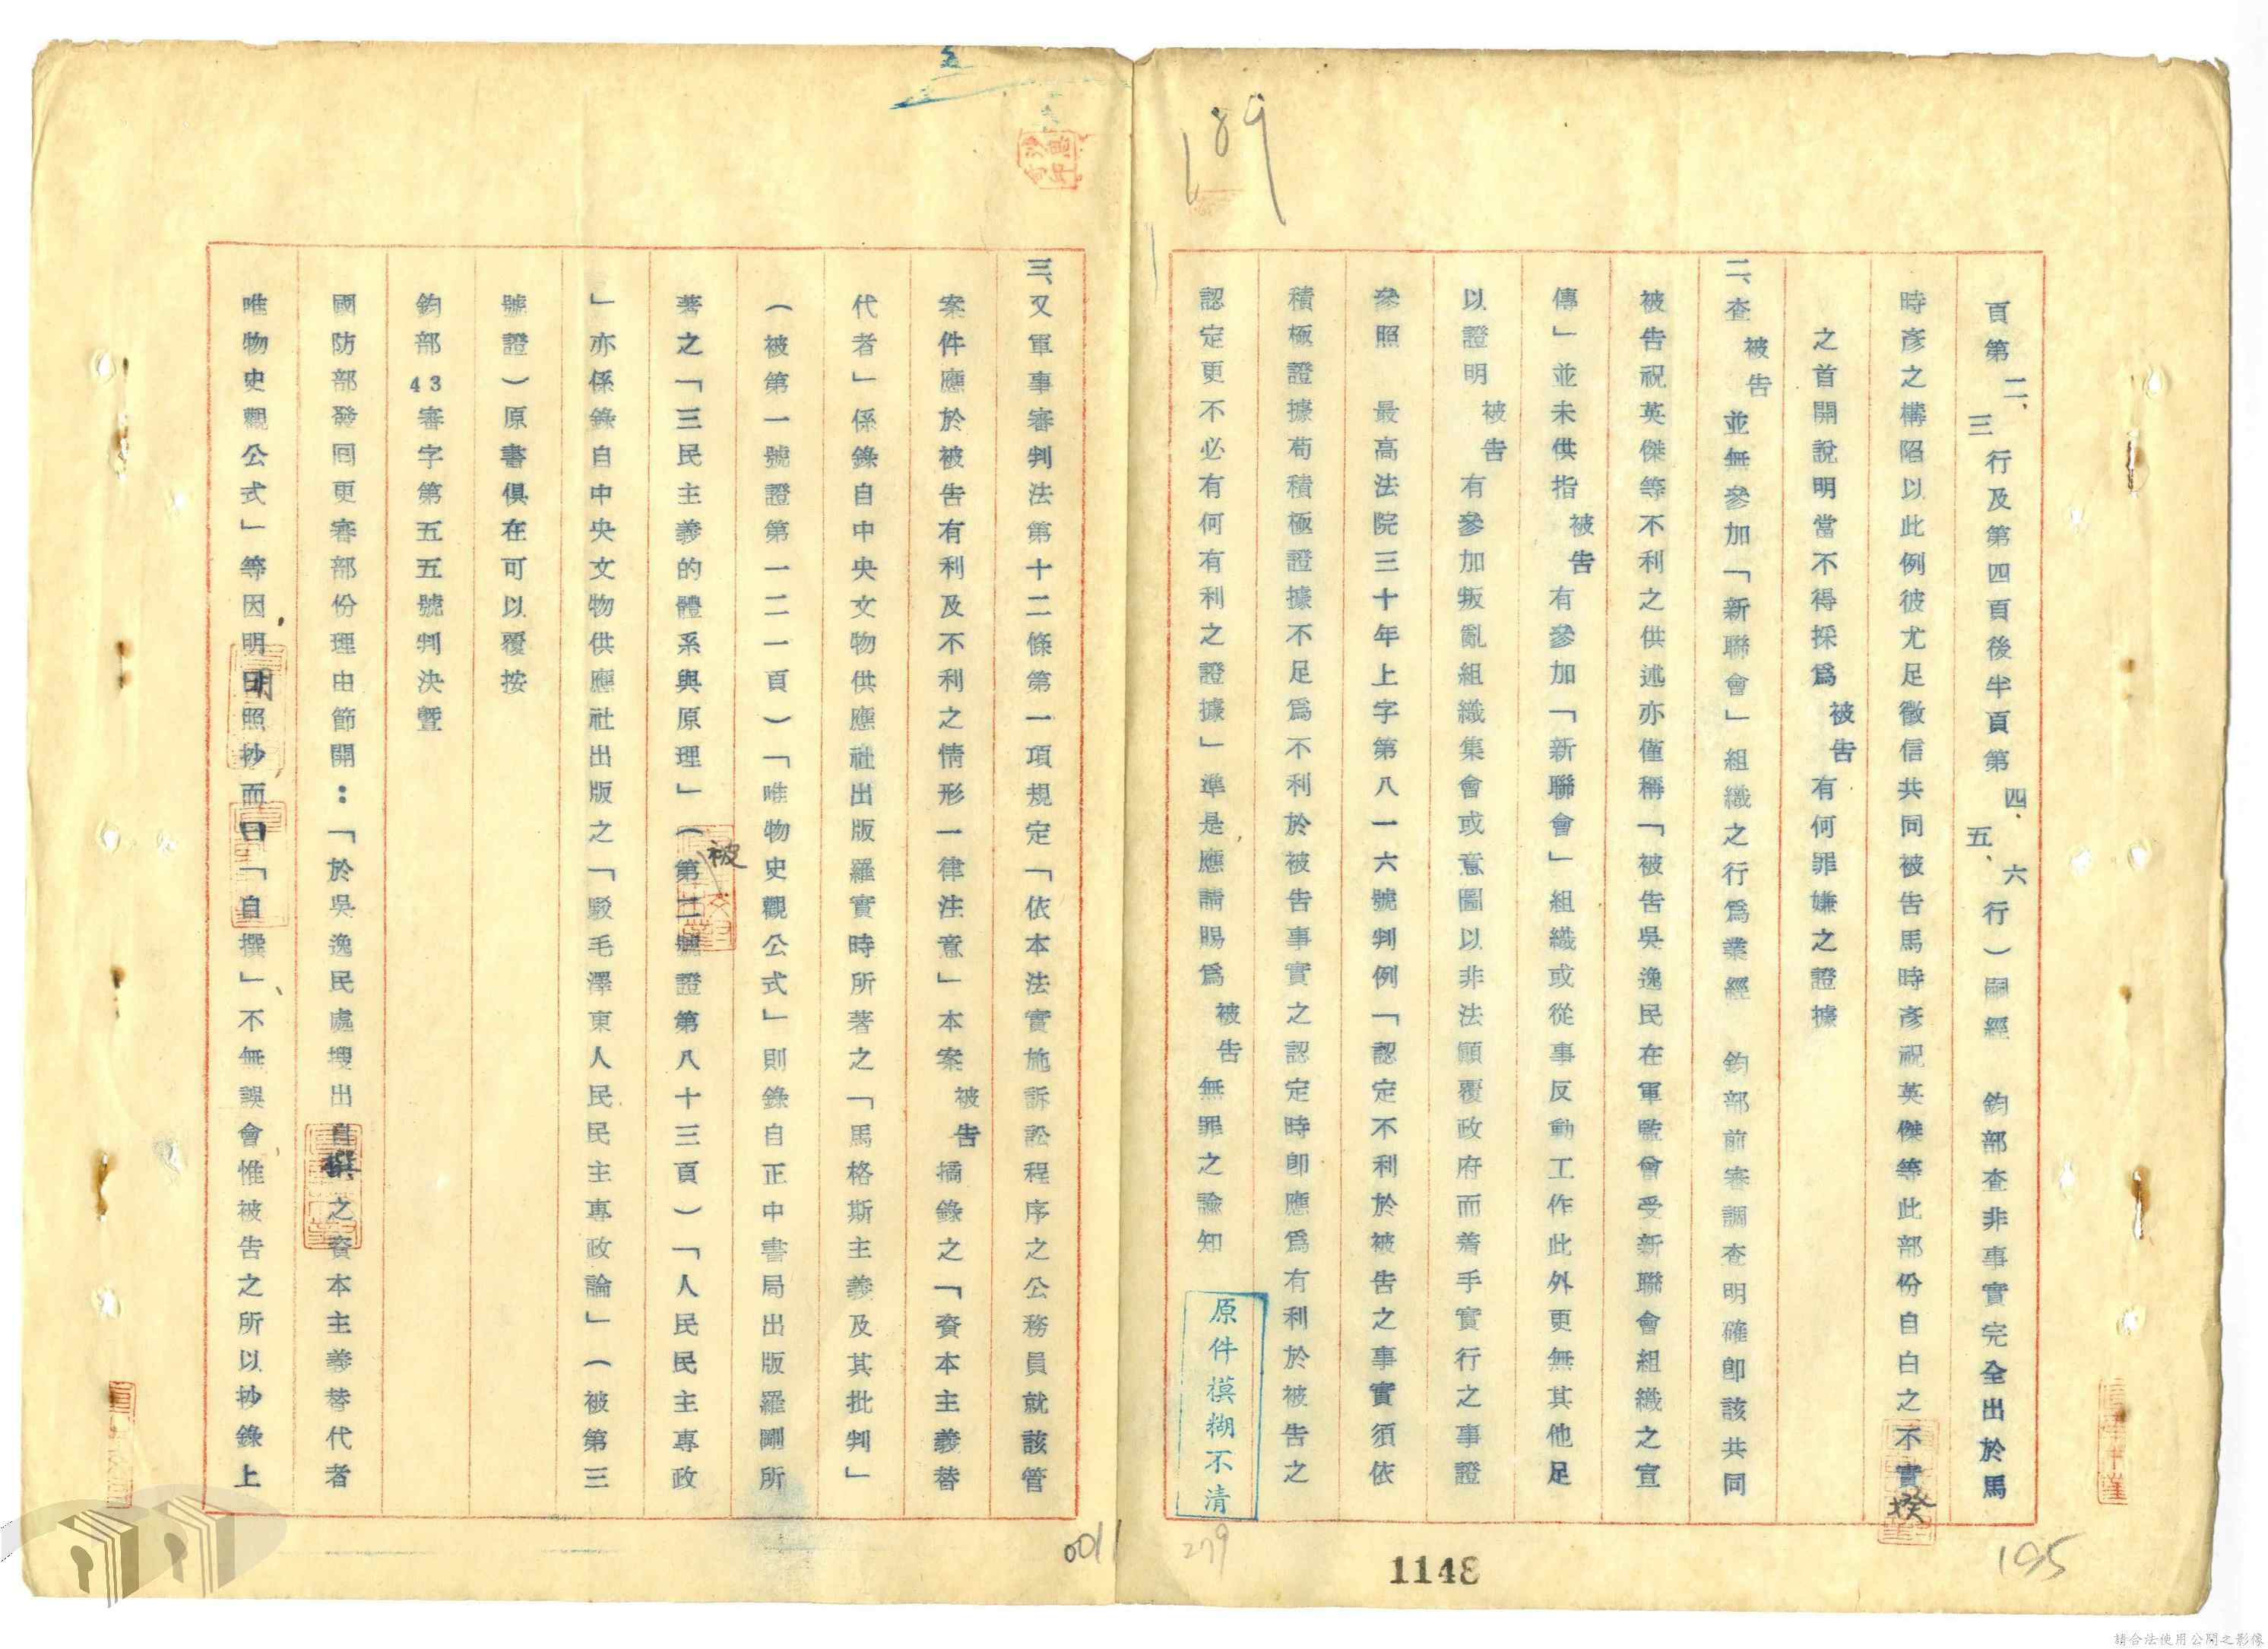 189
頁第二、三行及第四頁後半頁第四、五、六行）嗣經　鈞部查非事實完全出於馬
時彥之構陷以此例彼尤足徵信共同被告馬時彥祝英傑等此部份自白之不實揆
之首開說明當不得採爲被告有何罪嫌之證據
二、查被告並無參加「新聯會」組織之行爲業經　鈞部前審調查明確卽該共同
被告祝英傑等不利之供述亦僅稱「被告吳逸民在軍監會受新聯會組織之宣
傳」並未供指被告有參加「新聯會」組織或從事反動工作此外更無其他足
以證明被告有參加叛亂組織集會或意圖以非法顚覆政府而着手實行之事證
參照　最高法院三十年上字第八一六號判例「認定不利於被告之事實須依
積極證據苟積極證據不足爲不利於被告事實之認定時卽應爲有利於被告之
認定更不必有何有利之證據」準是應請賜爲被告無罪之諭知
原件模糊不清
279
1148
195
三、又軍事審判法第十二條第一項規定「依本法實施訴訟程序之公務員就該管
案件應於被告有利及不利之情形一律注意」本案被告摘錄之「資本主義替
代者」係錄自中央文物供應社出版羅實時所著之「馬格斯主義及其批判」
（被第一號證第一二一頁）「唯物史觀公式」則錄自正中書局出版羅剛所
著之「三民主義的體系與原理」（被第二號證第八十三頁）「人民民主專政
」亦係錄自中央文物供應社出版之「駁毛澤東人民民主專政論」（被第三
號證）原書俱在可以覆按
鈞部43審字第五五號判決暨
國防部發回更審部份理由節開：「於吳逸民處搜出自撰之資本主義替代者
唯物史觀公式」等因明明照抄而曰「自撰」不無誤會惟被告之所以抄錄上
0011
請合法使用公開之影像